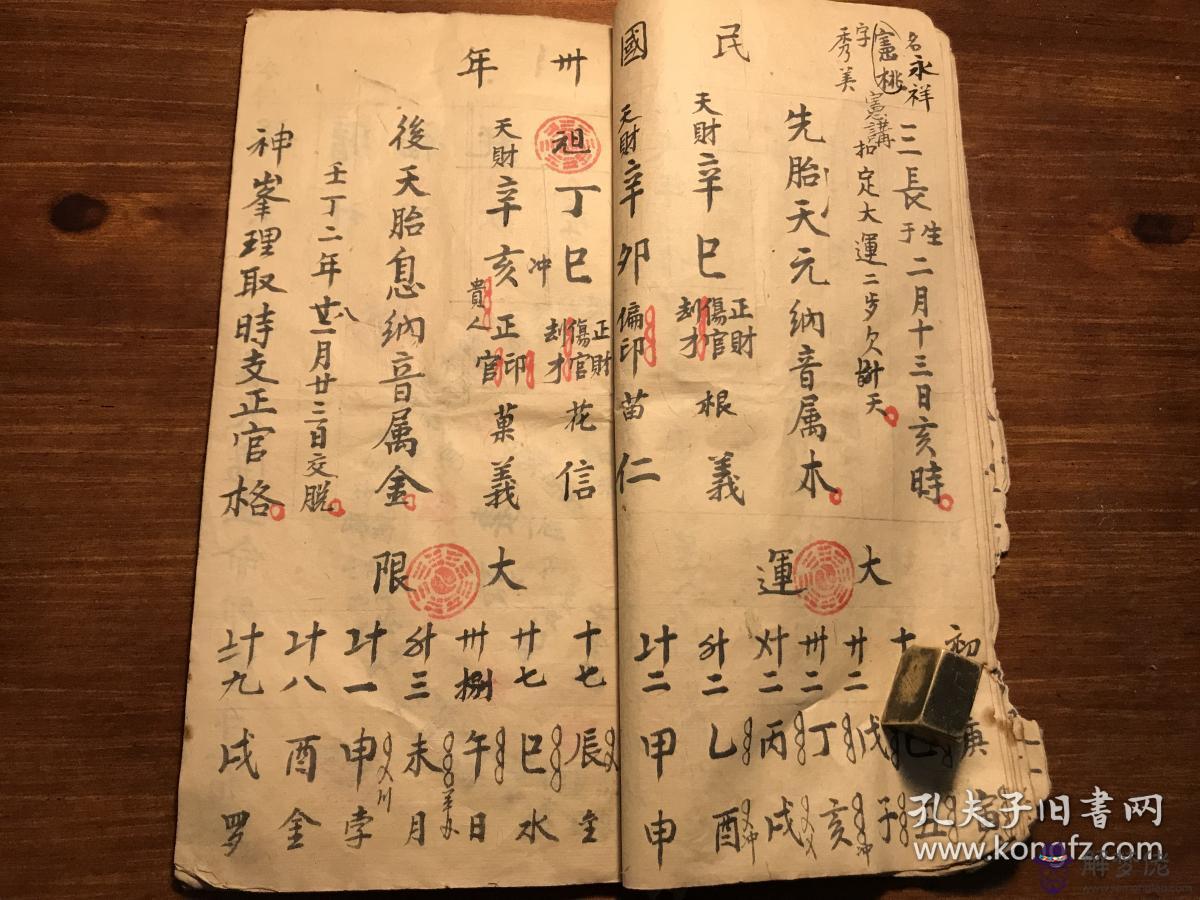 民國卅年
名永祥
憲桃
字秀美
三長生于二月十三日亥時
憲講和定大運二歩欠卅天
先胎天元納音属木
天財辛巳正財傷官刦才根義
天財辛卯偏印苗仁
祖丁巳冲正財傷官刦才花信
天財辛亥貴人正印官菓義
後天胎息納音属金
壬丁二年 月廿三日交脱
神峯理取時支正官格
大運
初 庚
十
廿二 戊子
卅二 丁亥冲
二 丙戌
二 乙酉冲
二 甲申
大限
十七 辰
廿七 巳水
卅捌 午日
三 未月
一 申孛
八 酉金
九 戌罗
孔夫子旧书网
www.kongfz.com
解梦佬